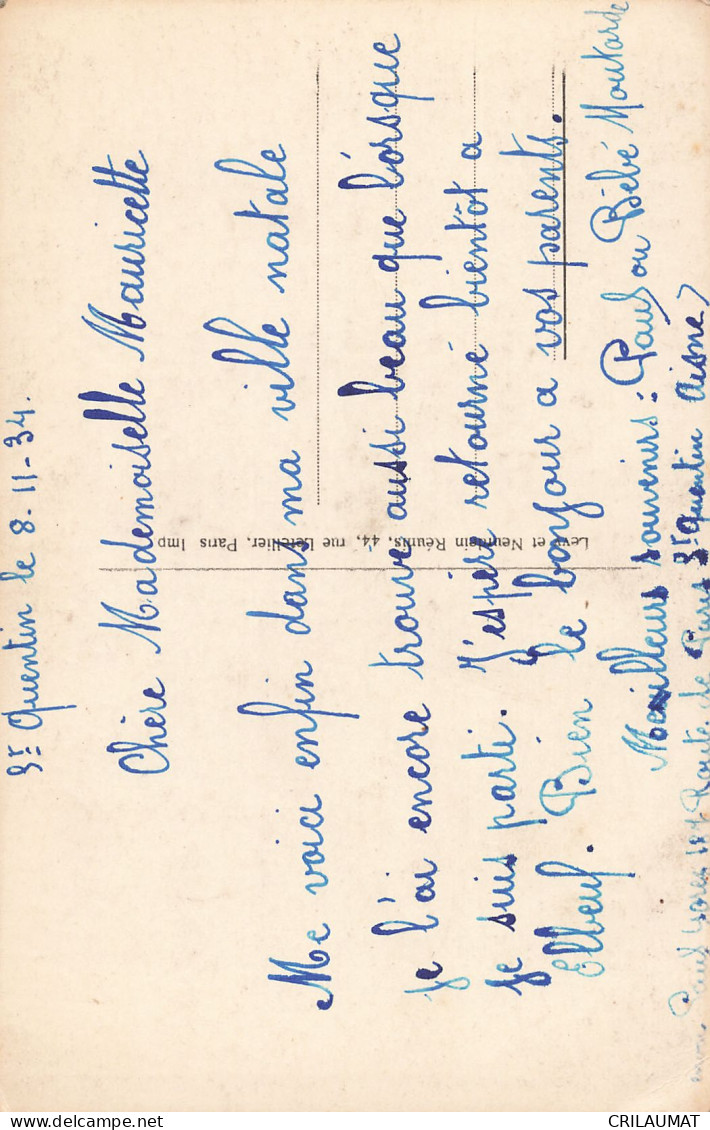 St Quentin le 8-11-34.
Chère Mademoiselle Mauricette
Me voici enfin dans ma ville natale
je l'ai encore trouvé aussi beau que lorsque
je suis parti. J'espère retourné bientôt a
Elbeuf. Bien le bonjour a vos parents.
Meilleurs souvenirs: Paul ou Bébé Moutarde
Paul Route de Paris St Quentin Aisne)
Levy et Neurdein Réunis, 44, rue Letellier, Paris Imp
CRILAUMAT